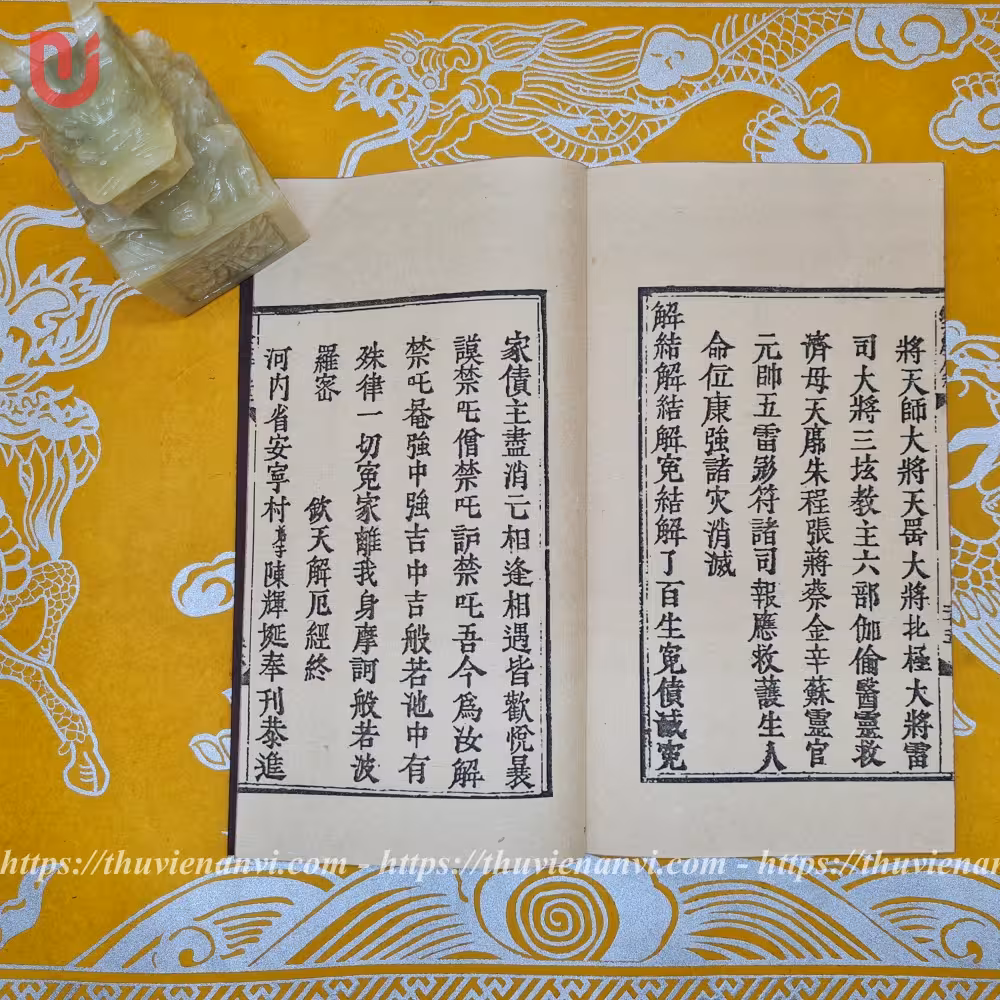 將天師大將天罡大將北極大將雷
司大將三教主六部伽倫醫靈救
濟母天朱程張蔣蔡金辛蘇靈官
元帥五雷符諸司報應救護生人
命位康強諸灾消滅
解結解結解寃結解了百生寃債滅寃
家債主盡消亡相逢相遇皆歡悅曩
謨禁吒僧禁吒訶禁吒吾今爲汝解
禁吒菴強中強吉中吉般若池中有
殊律一切寃家離我身摩訶般若波
羅密
欽天解厄經終
河內省安寧村陳輝奉刊恭進
https://thuvienanvi.com - https://thuvienanvi.com - https://thuvienan